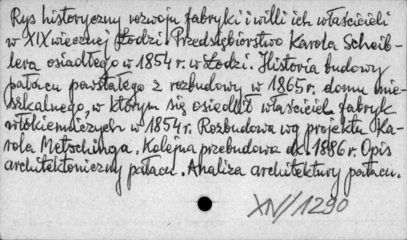 Rys historyczny rozwoju fabryki i willi ich właścicieli
w XIX wiecznej Łodzi. Przedsiębiorstwo Karola Scheib-
lera osiadłego w 1854 r. w Łodzi. Historia budowy
pałacu powstałego z rozbudowy w 1865 r. domu mie-
szkalnego, w którym się osiedlił właściciel fabryk
włókienniczych w 1854 r. Rozbudowa wg projektu Ka-
rola Metschinga. Kolejna przebudowa ok. 1886 r. Opis
architektoniczny pałacu. Analiza architektury pałacu.
XIV/1290